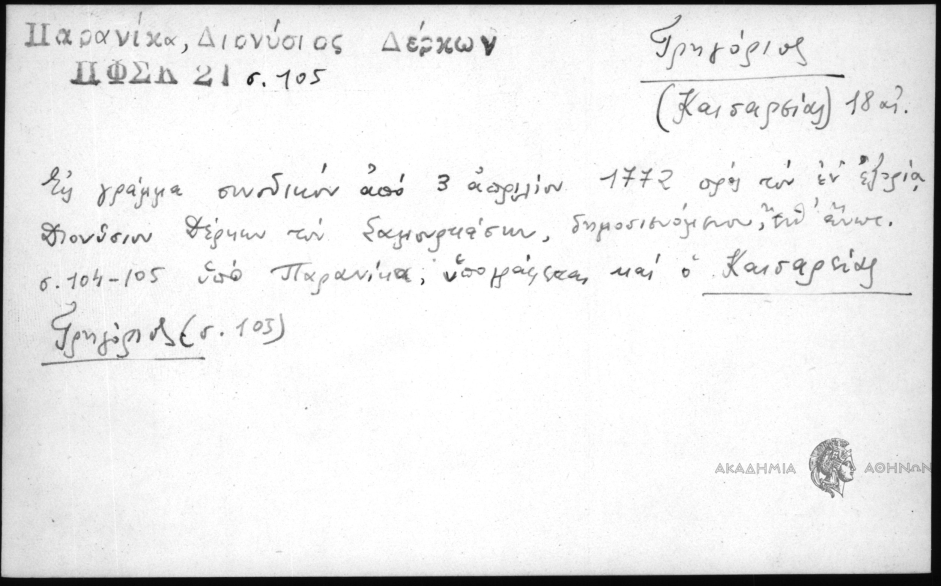 Παρανίκα, Διονύσιος Δέρκων
ΠΦΣΚ 21 σ. 105
Γρηγόριος
(Καισαρείας) 18 αἰ.
Εἰς γράμμα συνοδικόν ἀπό 3 ἀπριλίου 1772 πρός τόν ἐν ἐξορίᾳ
Διονύσιον Δέρκων τόν Σαμουρκάσην, δημοσιευόμενον, ἔνθ' ἄνωτ.
σ. 104-105 ὑπό Παρανίκα, ὑπογράφεται καί ὁ Καισαρείας
Γρηγόριος (σ. 105)
ΑΚΑΔΗΜΙΑ ΑΘΗΝΩΝ